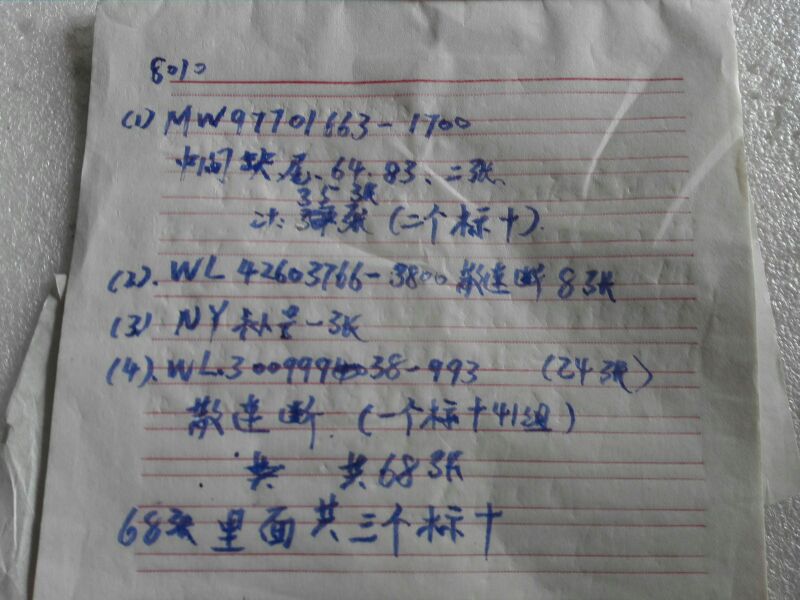 8010
(1) MW97701663-1700
中间缺尾、64、83、二张、
35张
计: (二个标十).
(2). WL 42603766-3800 散连断 8张
(3) NY 补号一张
(4). WL.3009994 38-993 (24张)
散连断. (一个标十41组)
共 共68张
68张里面共三个标十